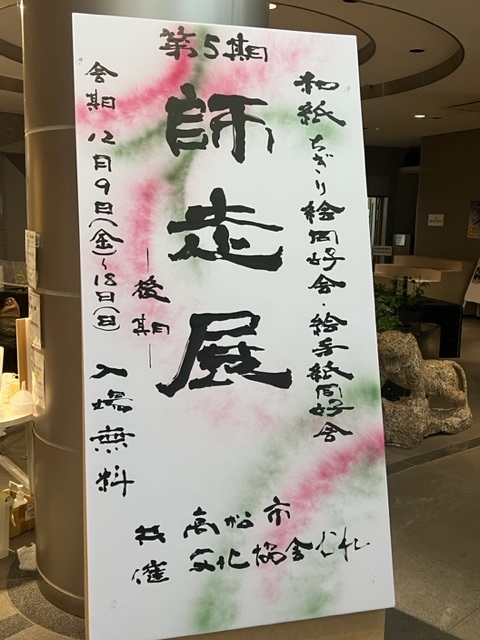 第5期
和紙ちぎり絵同好会・絵手紙同好会
師走展
―後期―
会期 12月9日(金)~18日(日) 入場無料
共催 高松市
文化協会